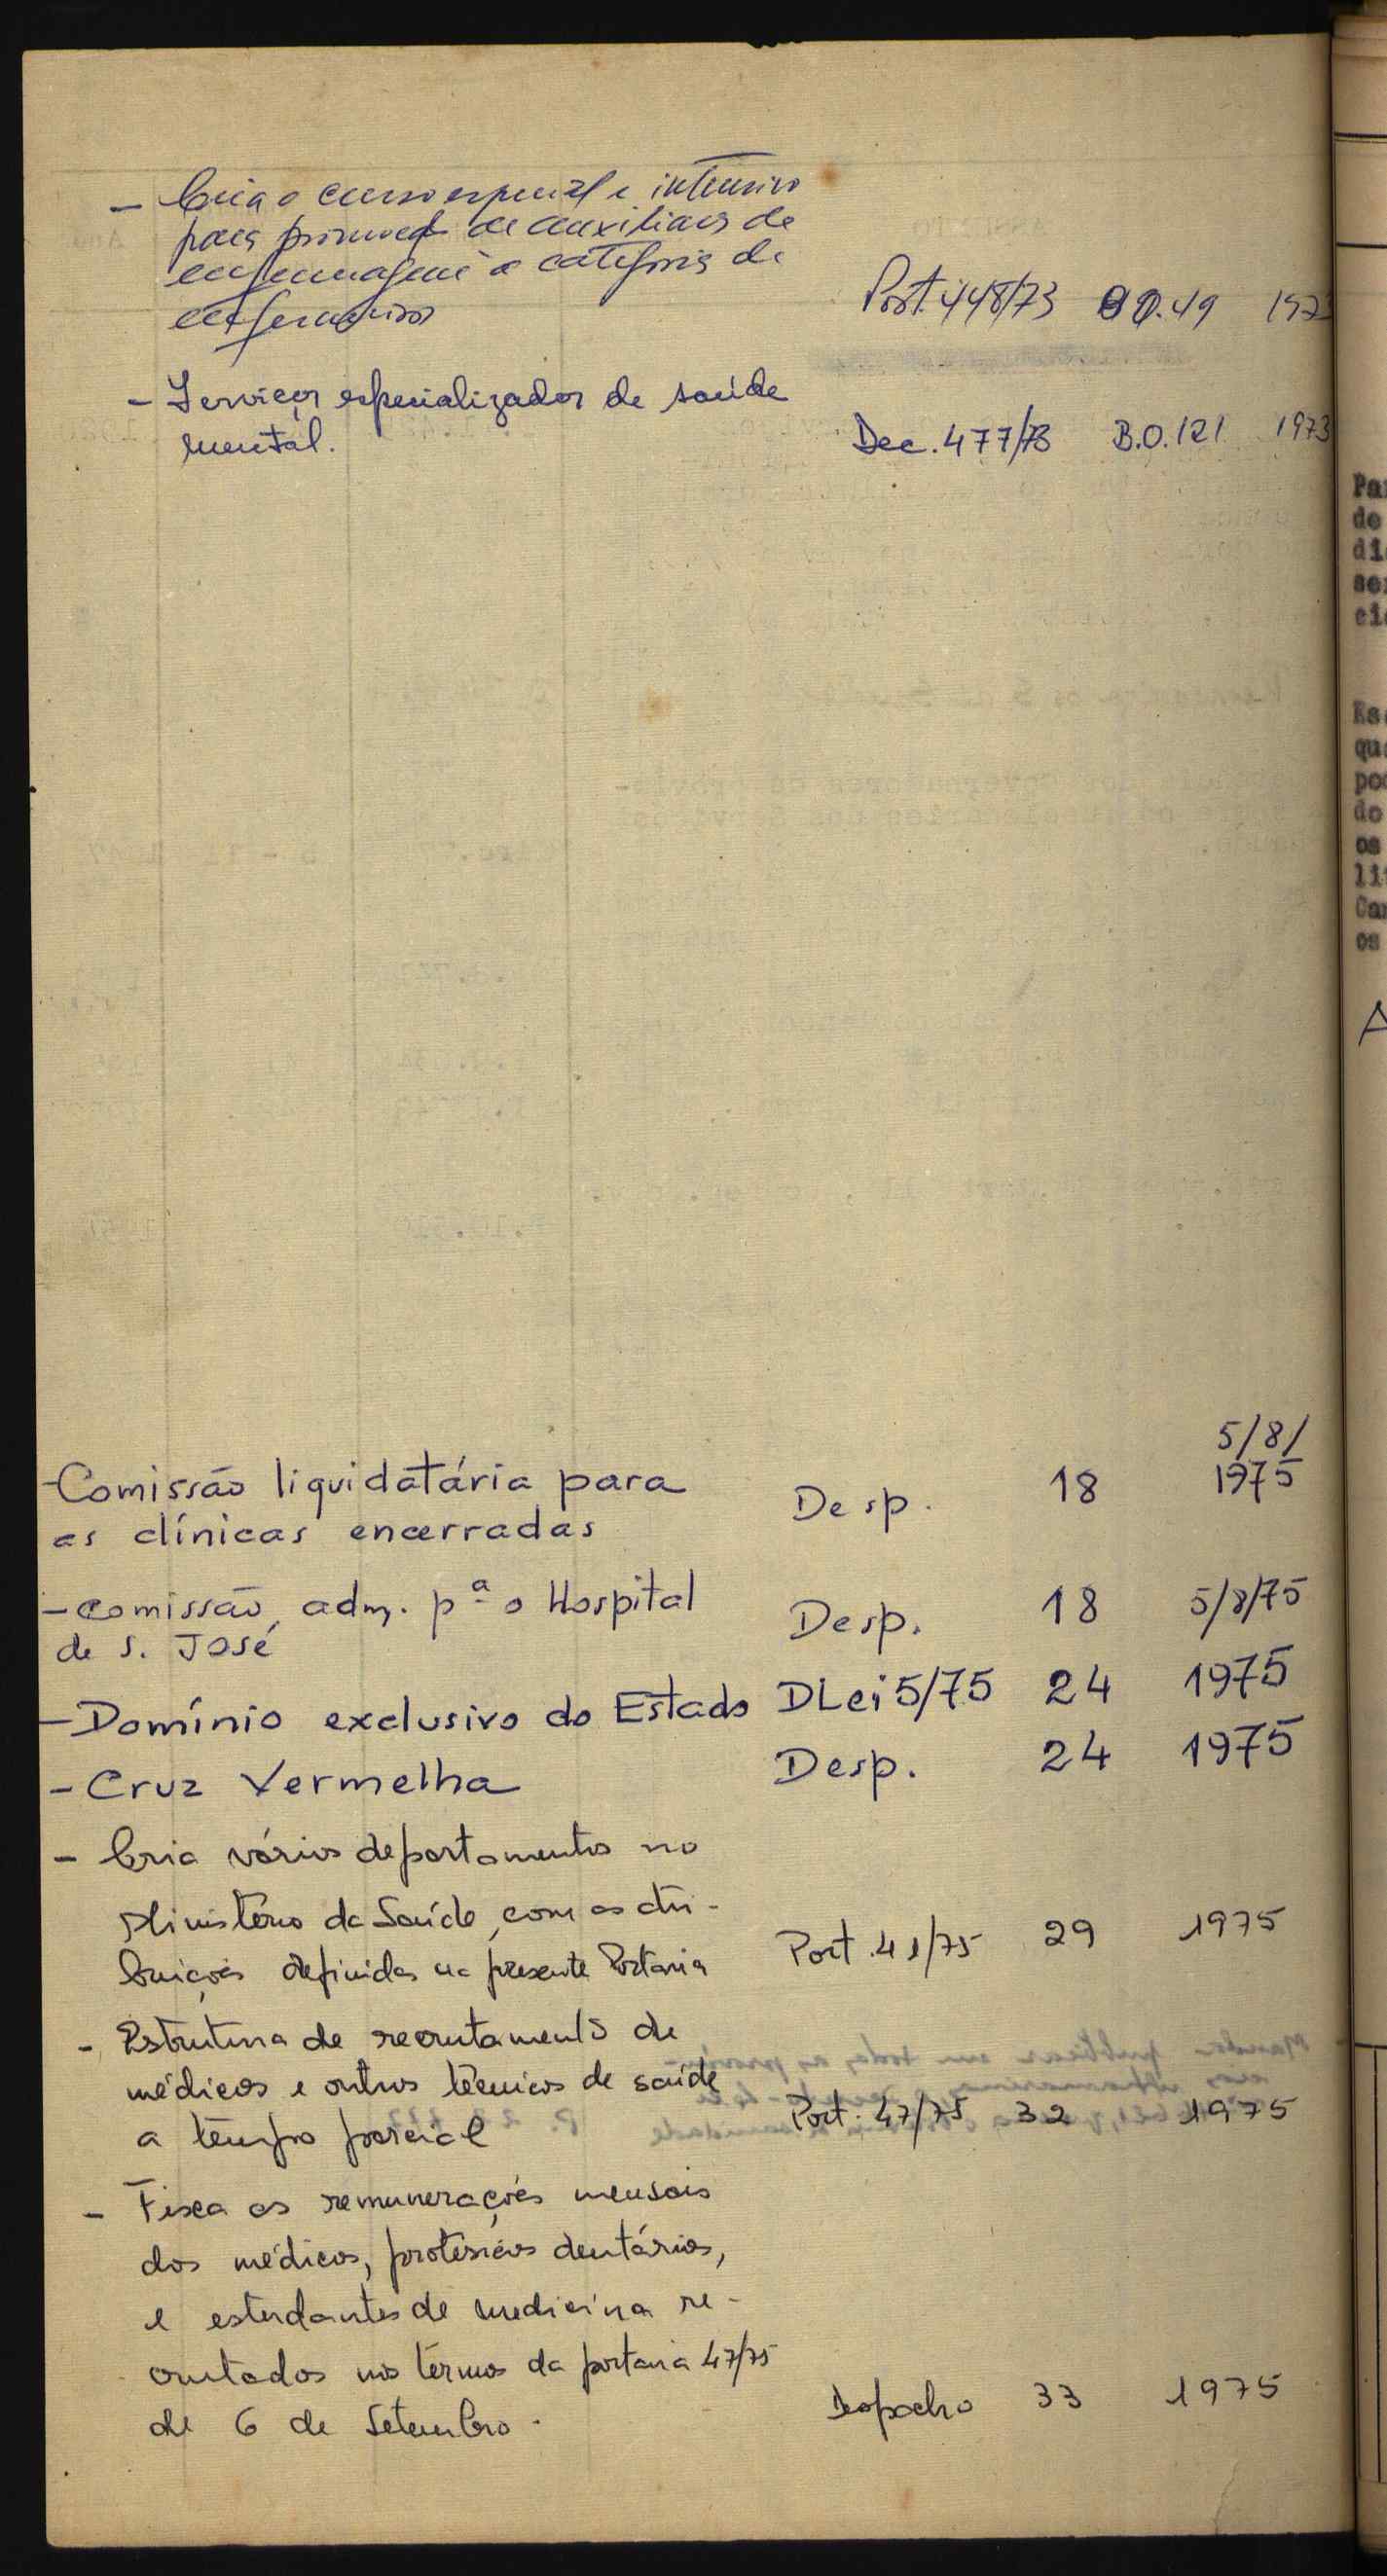 - Cria o curso especial e intensivo
para promoção de auxiliares de
enfermagem à categoria de
enfermeiros
Port. 448/73 BO.49 1973
- Serviços especializados de saúde
mental.
Dec. 477/73 B.O.121 1973
5/8/
- Comissão liquidatária para
as clínicas encerradas
Desp. 18 1975
- comissão adm. pª o Hospital
de S. José
Desp. 18 5/8/75
- Domínio exclusivo do Estado DLei 5/75 24 1975
- Cruz Vermelha Desp. 24 1975
- Cria vários departamentos no
Ministério da Saúde, com as atri-
buições definidas na presente Portaria Port. 41/75 29 1975
- Estrutura de recrutamento de
médicos e outros técnicos de saúde
a tempo parcial
Port. 47/75 32 1975
- Fixa as remunerações mensais
dos médicos, protésicos dentários,
e estudantes de medicina re-
crutados nos termos da portaria 47/75
de 6 de Setembro.
Despacho 33 1975
Par
de
di
se
ci
Es
qu
po
do
os
li
Ca
os
A